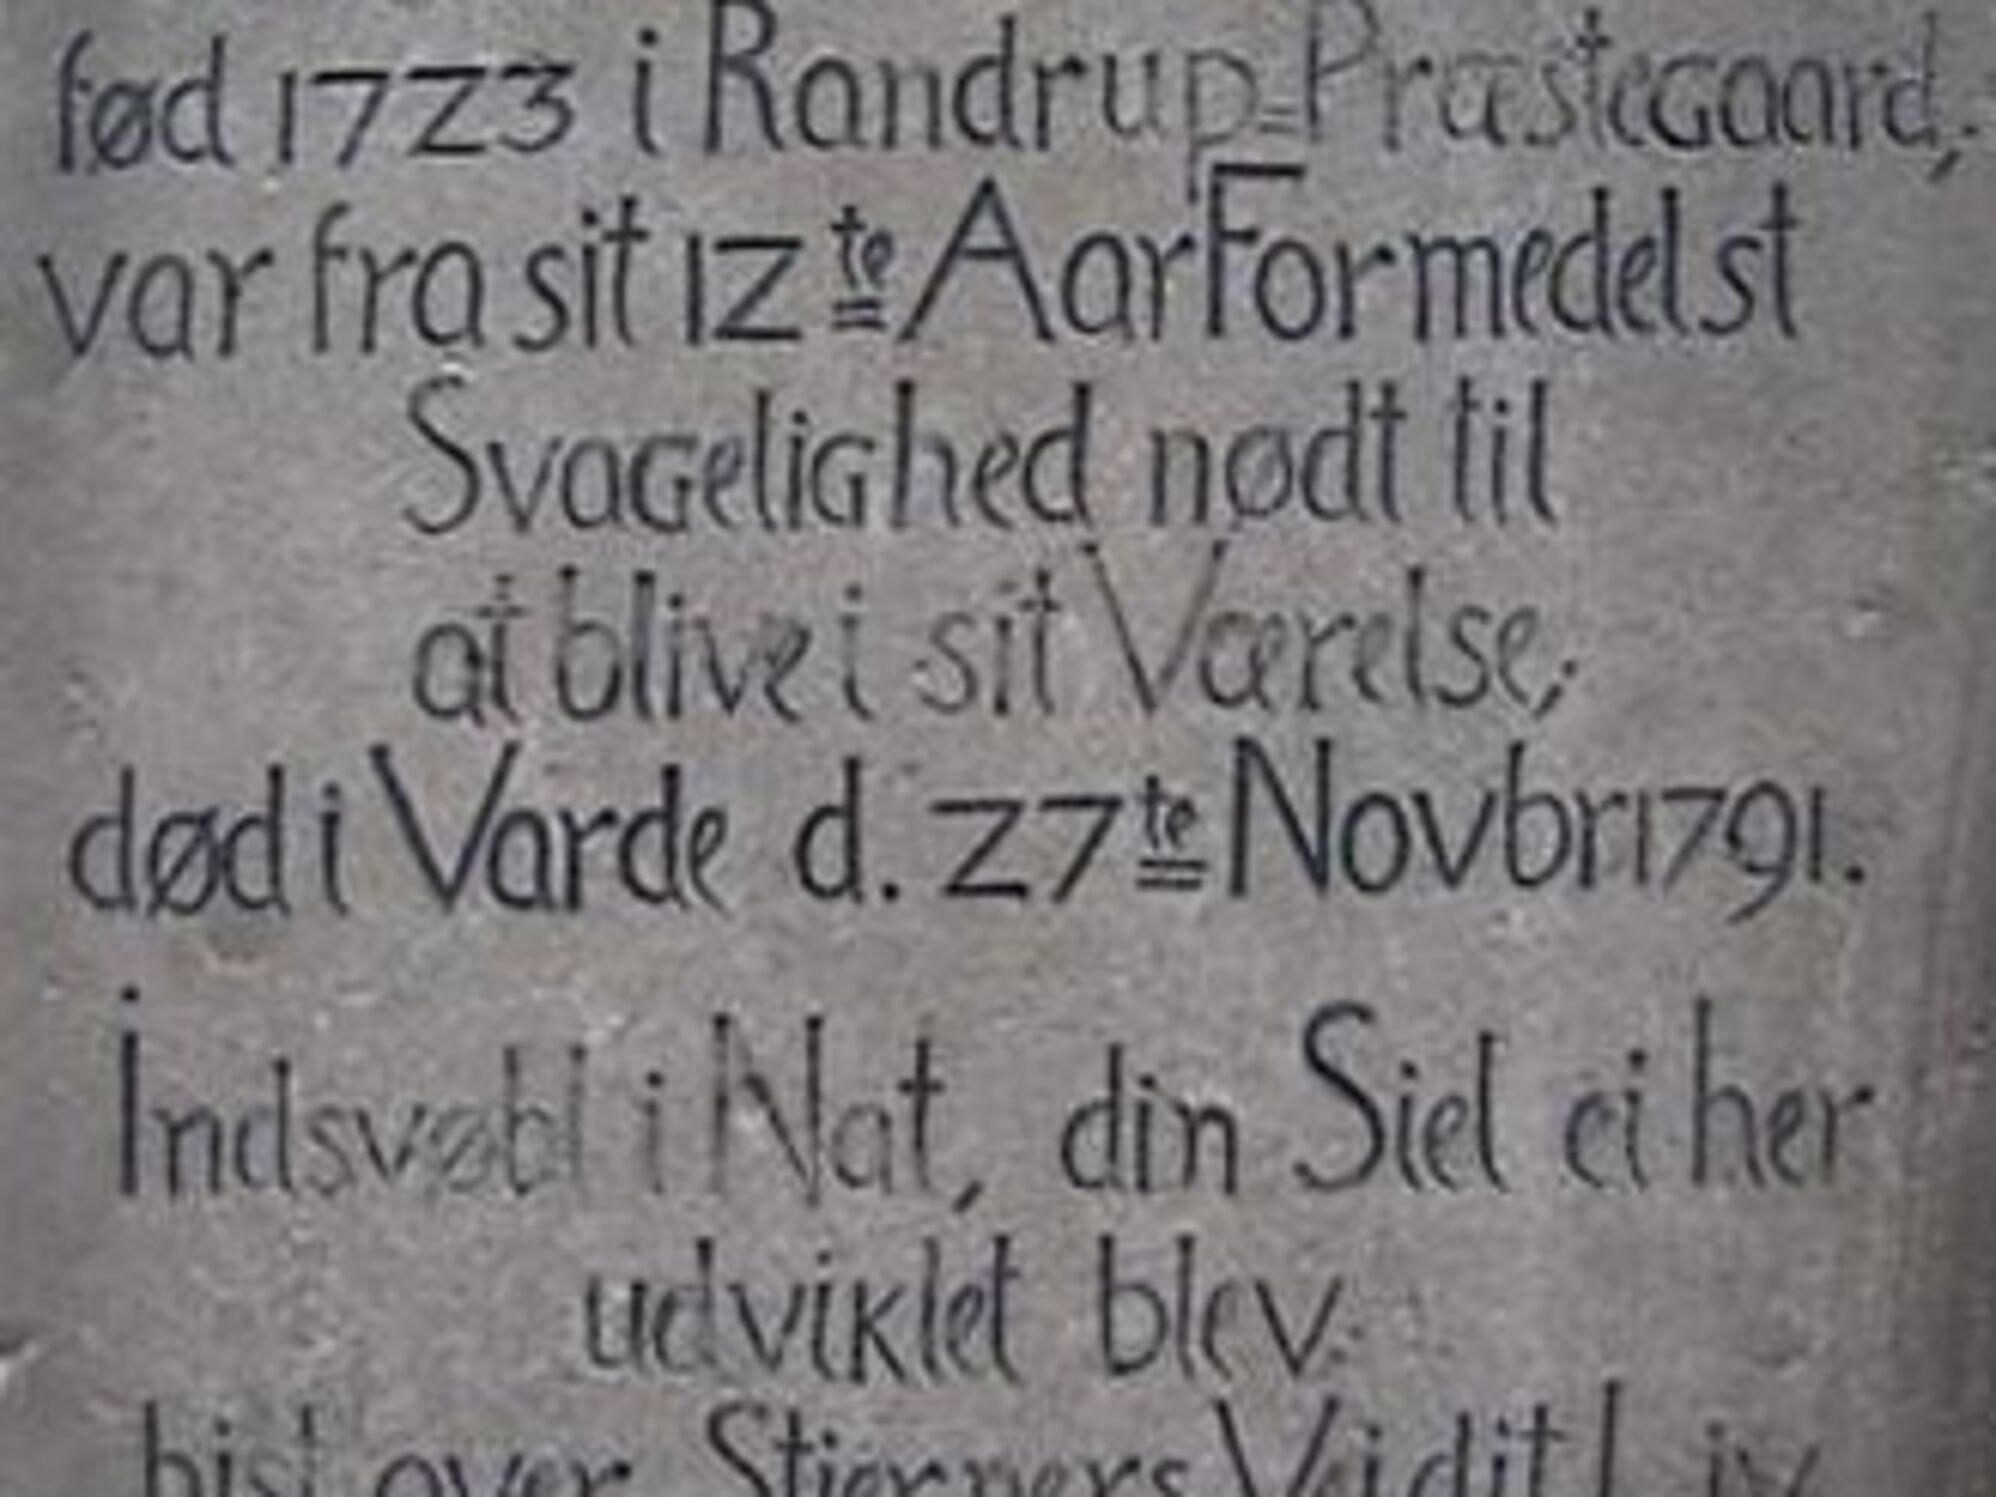 fød 1723 i Randrup=Præstegaard,
var fra sit 12te Aar Formedelst
Svagelighed nødt til
at blive i sit Værelse;
død i Varde d. 27te Novbr 1791.
Indsvøbt i Nat, din Siel ei her
udviklet blev:
hist over Stierners Vei dit Liv